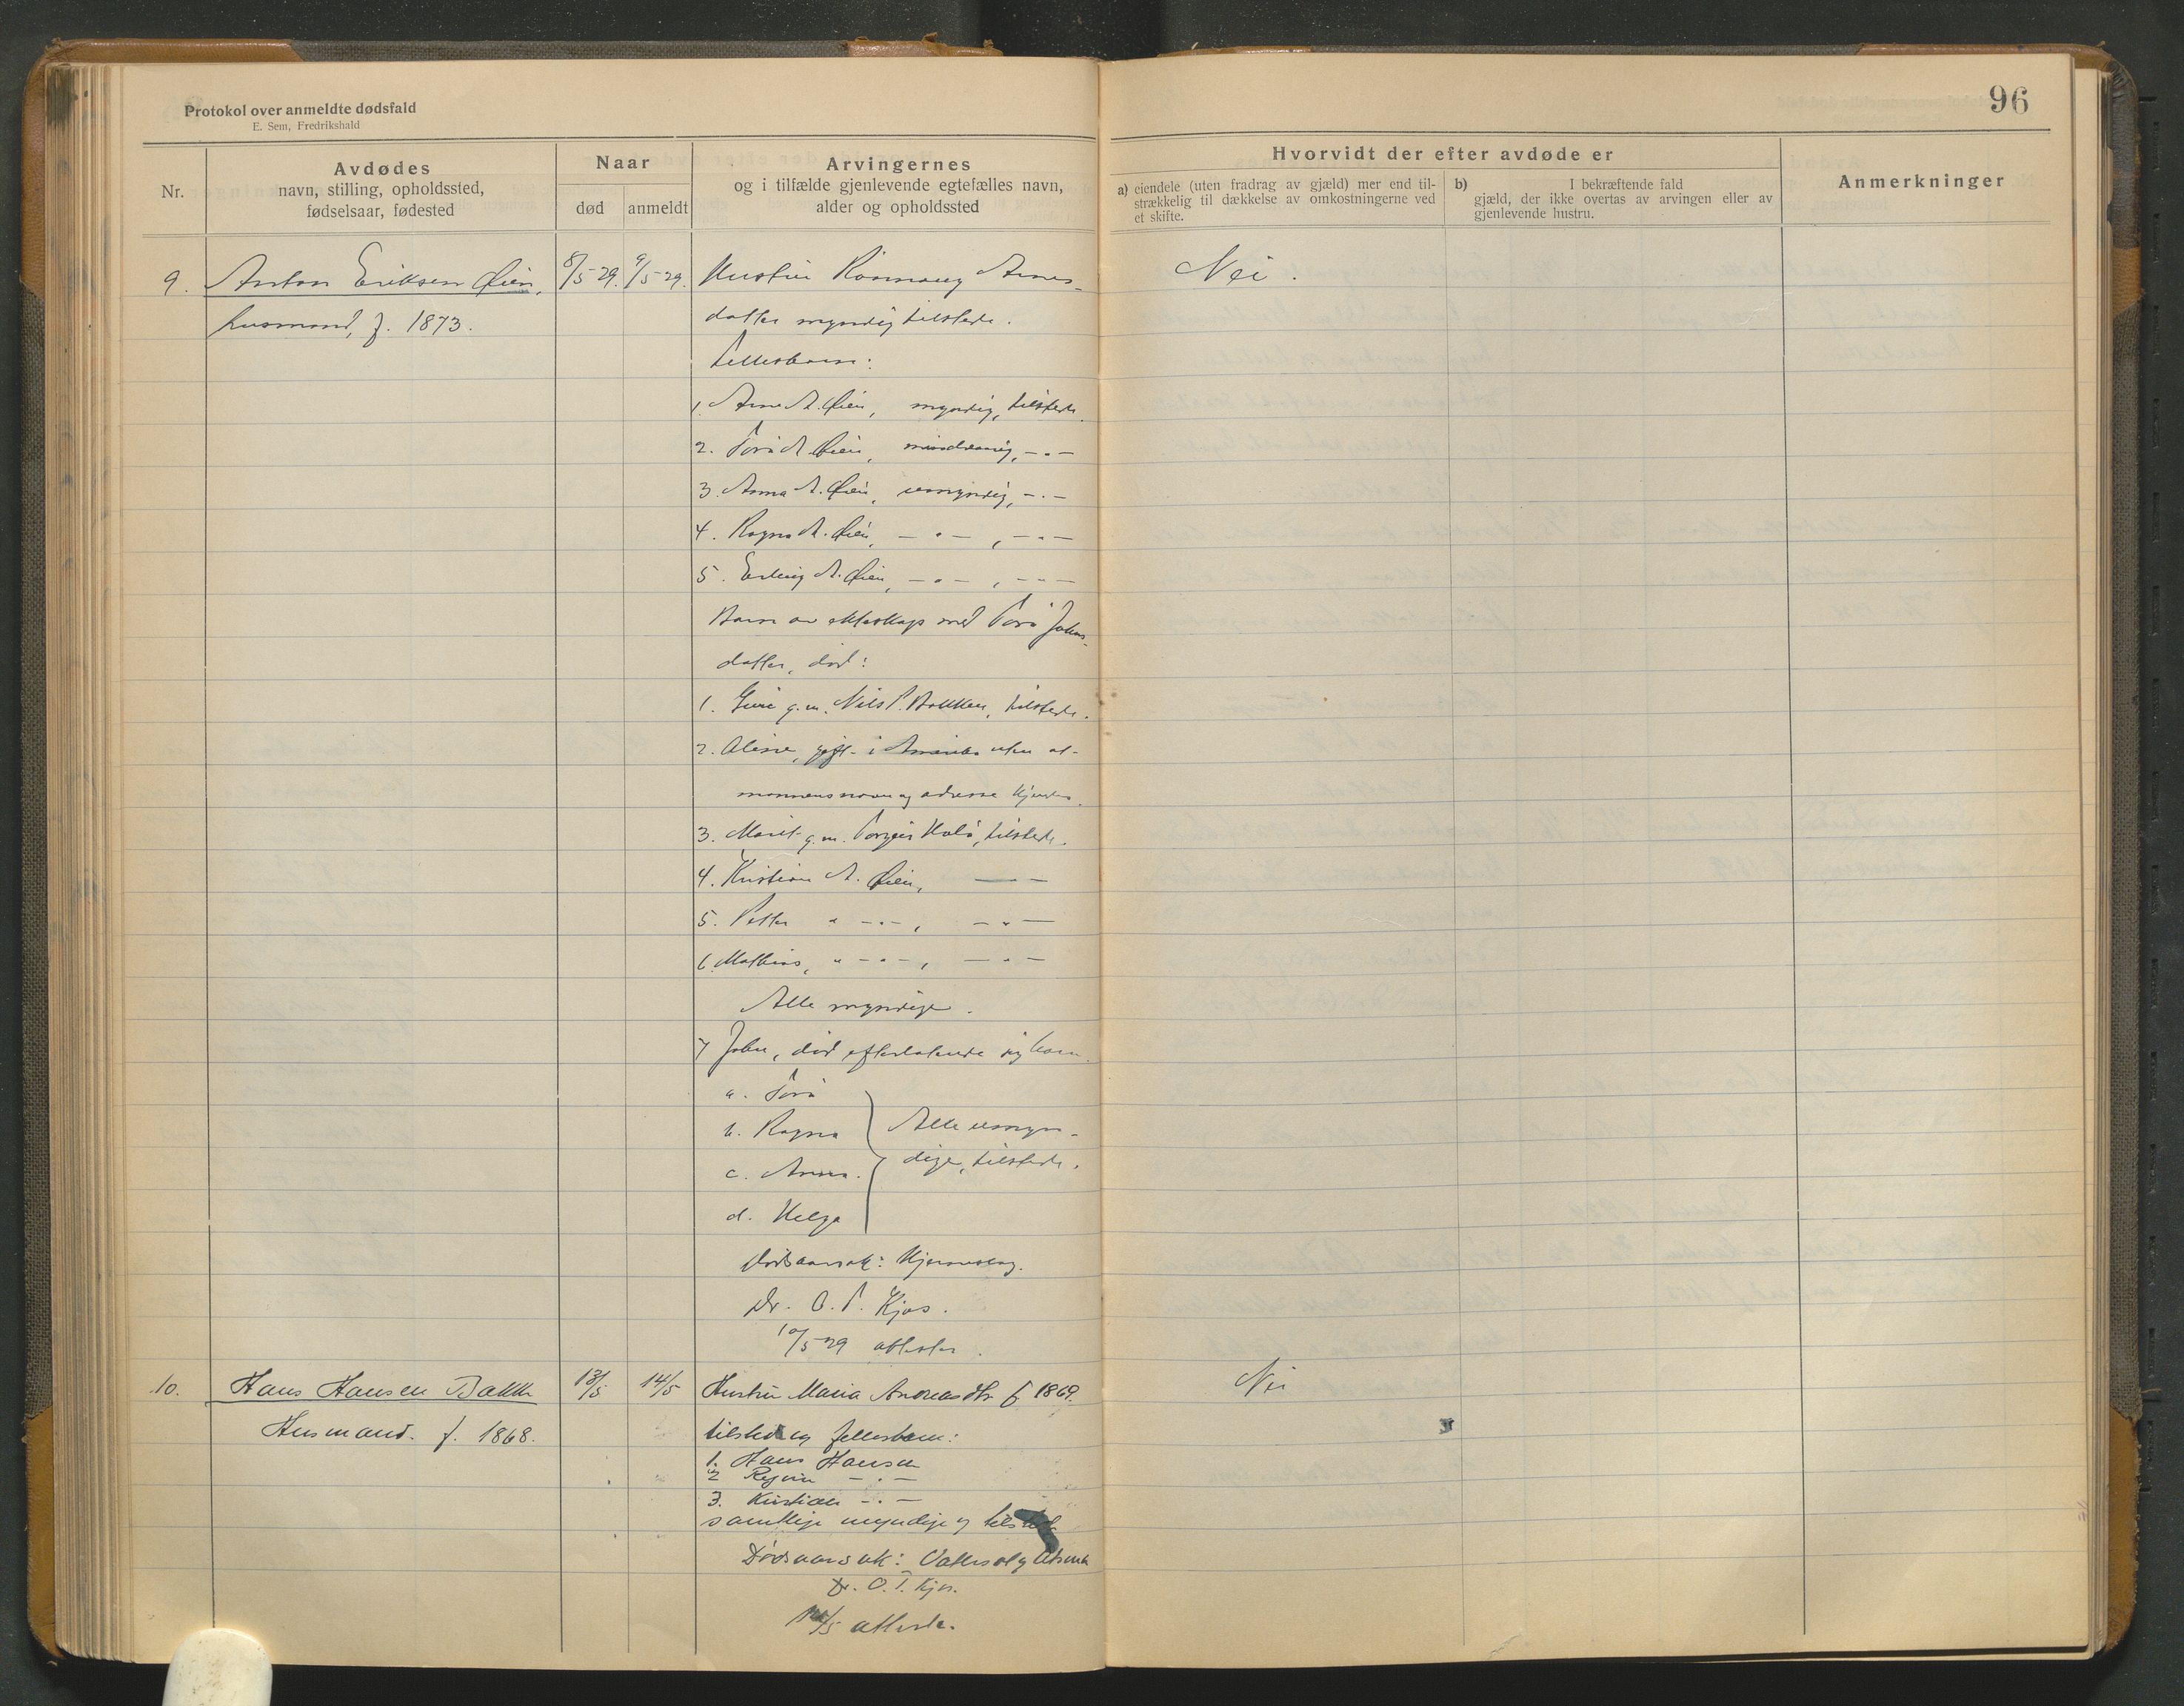 Protokol over anmeldte dødsfald
E. Sem, Fredrikshald
96
Nr.
Avdødes
navn, stilling, opholdssted,
fødselsaar, fødested
Naar
død
anmeldt
Arvingernes
og i tilfælde gjenlevende egtefælles navn,
alder og opholdssted
Hvorvidt der efter avdøde er
a) eiendele (uten fradrag av gjæld) mer end til-
strækkelig til dækkelse av omkostningerne ved
et skifte.
b) I bekræftende fald
gjæld, der ikke overtas av arvingen eller av
gjenlevende hustru.
Anmerkninger
9. Anton Eriksen Øien, 8/5-29. 9/5-29. Hustru Rønnaug Arnes- Nei.
husmand, f. 1873. datter myndig tilstede.
Fellesbarn:
1. Arne A. Øien, myndig, tilstede.
2. Toro A. Øien, mindreaarig, -"-
3. Anna A. Øien, umyndig, -"-
4. Ragna A. Øien, -"-, -"-
5. Erling A. Øien, -"-, -"-
Barn av ekteskap med Toro Johns-
datter, død:
1. Guri g.m. Nils T. Bakken, tilstede.
2. Oline, gift i Amerika uten at
mannens navn og adresse kjendes.
3. Marit g.m. Torgeir Hals, tilstede.
4. Kristian A. Øien, -"-
5. Petter " -"-, -"-
6. Mathias, " -"-, -"-
Alle myndige.
7 John, død efterlatende sig barn.
a. Toro
b. Ragna Alle umyn-
c. Anna. dige, tilstede.
d. Helga
Dødsaarsak: Hjerneslag.
Dr. O. T. Kjos.
10/5-29 attester.
10. Hans Hansen Bakke 13/5 14/5 Hustru Maria Andreasdtr f 1869. Nei
Husmand. f. 1868. tilstede og fellesbarn:
1. Hans Hansen
2 -"-
3. Kristian -"-
samtlige myndige og tilstede
Dødsaarsak: Vattersot og
Dr. O. T. Kjos.
/5 atteste.